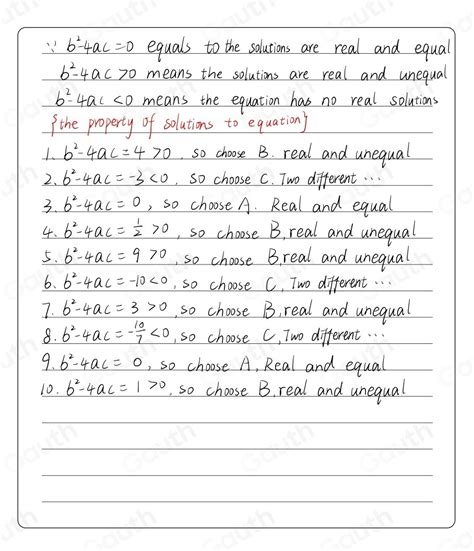 ∵ b²-4ac=0 equals to the solutions are real and equal
b²-4ac>0 means the solutions are real and unequal
b²-4ac<0 means the equation has no real solutions
{the property of solutions to equation}
1. b²-4ac=4>0, so choose B. real and unequal
2. b²-4ac=-3<0, so choose C. Two different ...
3. b²-4ac=0, so choose A. Real and equal
4. b²-4ac=1/2>0, so choose B, real and unequal
5. b²-4ac=9>0, so choose B, real and unequal
6. b²-4ac=-10<0, so choose C, Two different ...
7. b²-4ac=3>0, so choose B, real and unequal
8. b²-4ac=-10/7<0, so choose C, Two different ...
9. b²-4ac=0, so choose A, Real and equal
10. b²-4ac=1>0, so choose B, real and unequal
Gauth